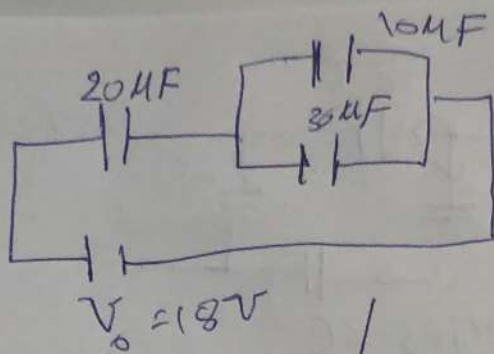 10μF
20μF
30μF
V₀ = 18V